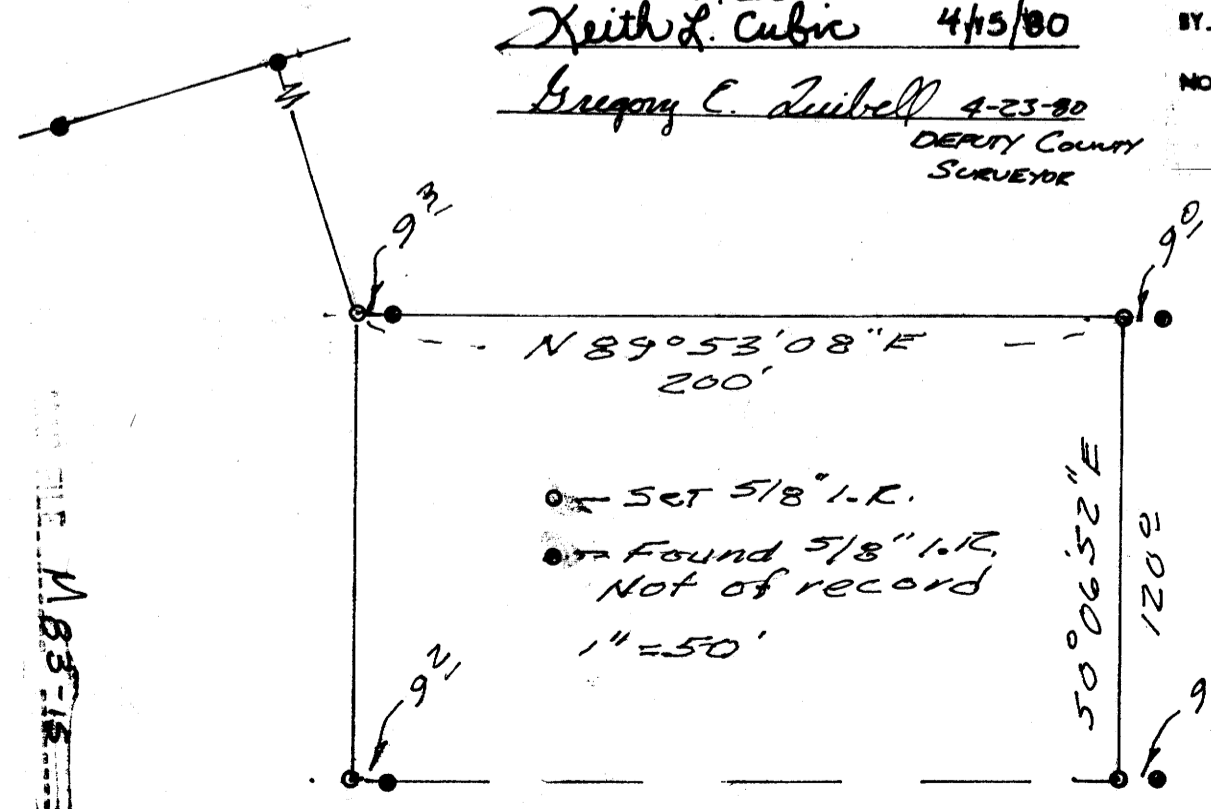 Keith L. Cubic 4/15/80
BY.
Gregory E. Quibell 4-23-80
NO
DEPUTY COUNTY
SURVEYOR
9 3
9 0
N 89°53'08"E
200'
Set 5/8" I.R.
Found 5/8" I.R.
Not of record
1"=50'
S0°06'52"E
120 0
9 2
9
M 83-15